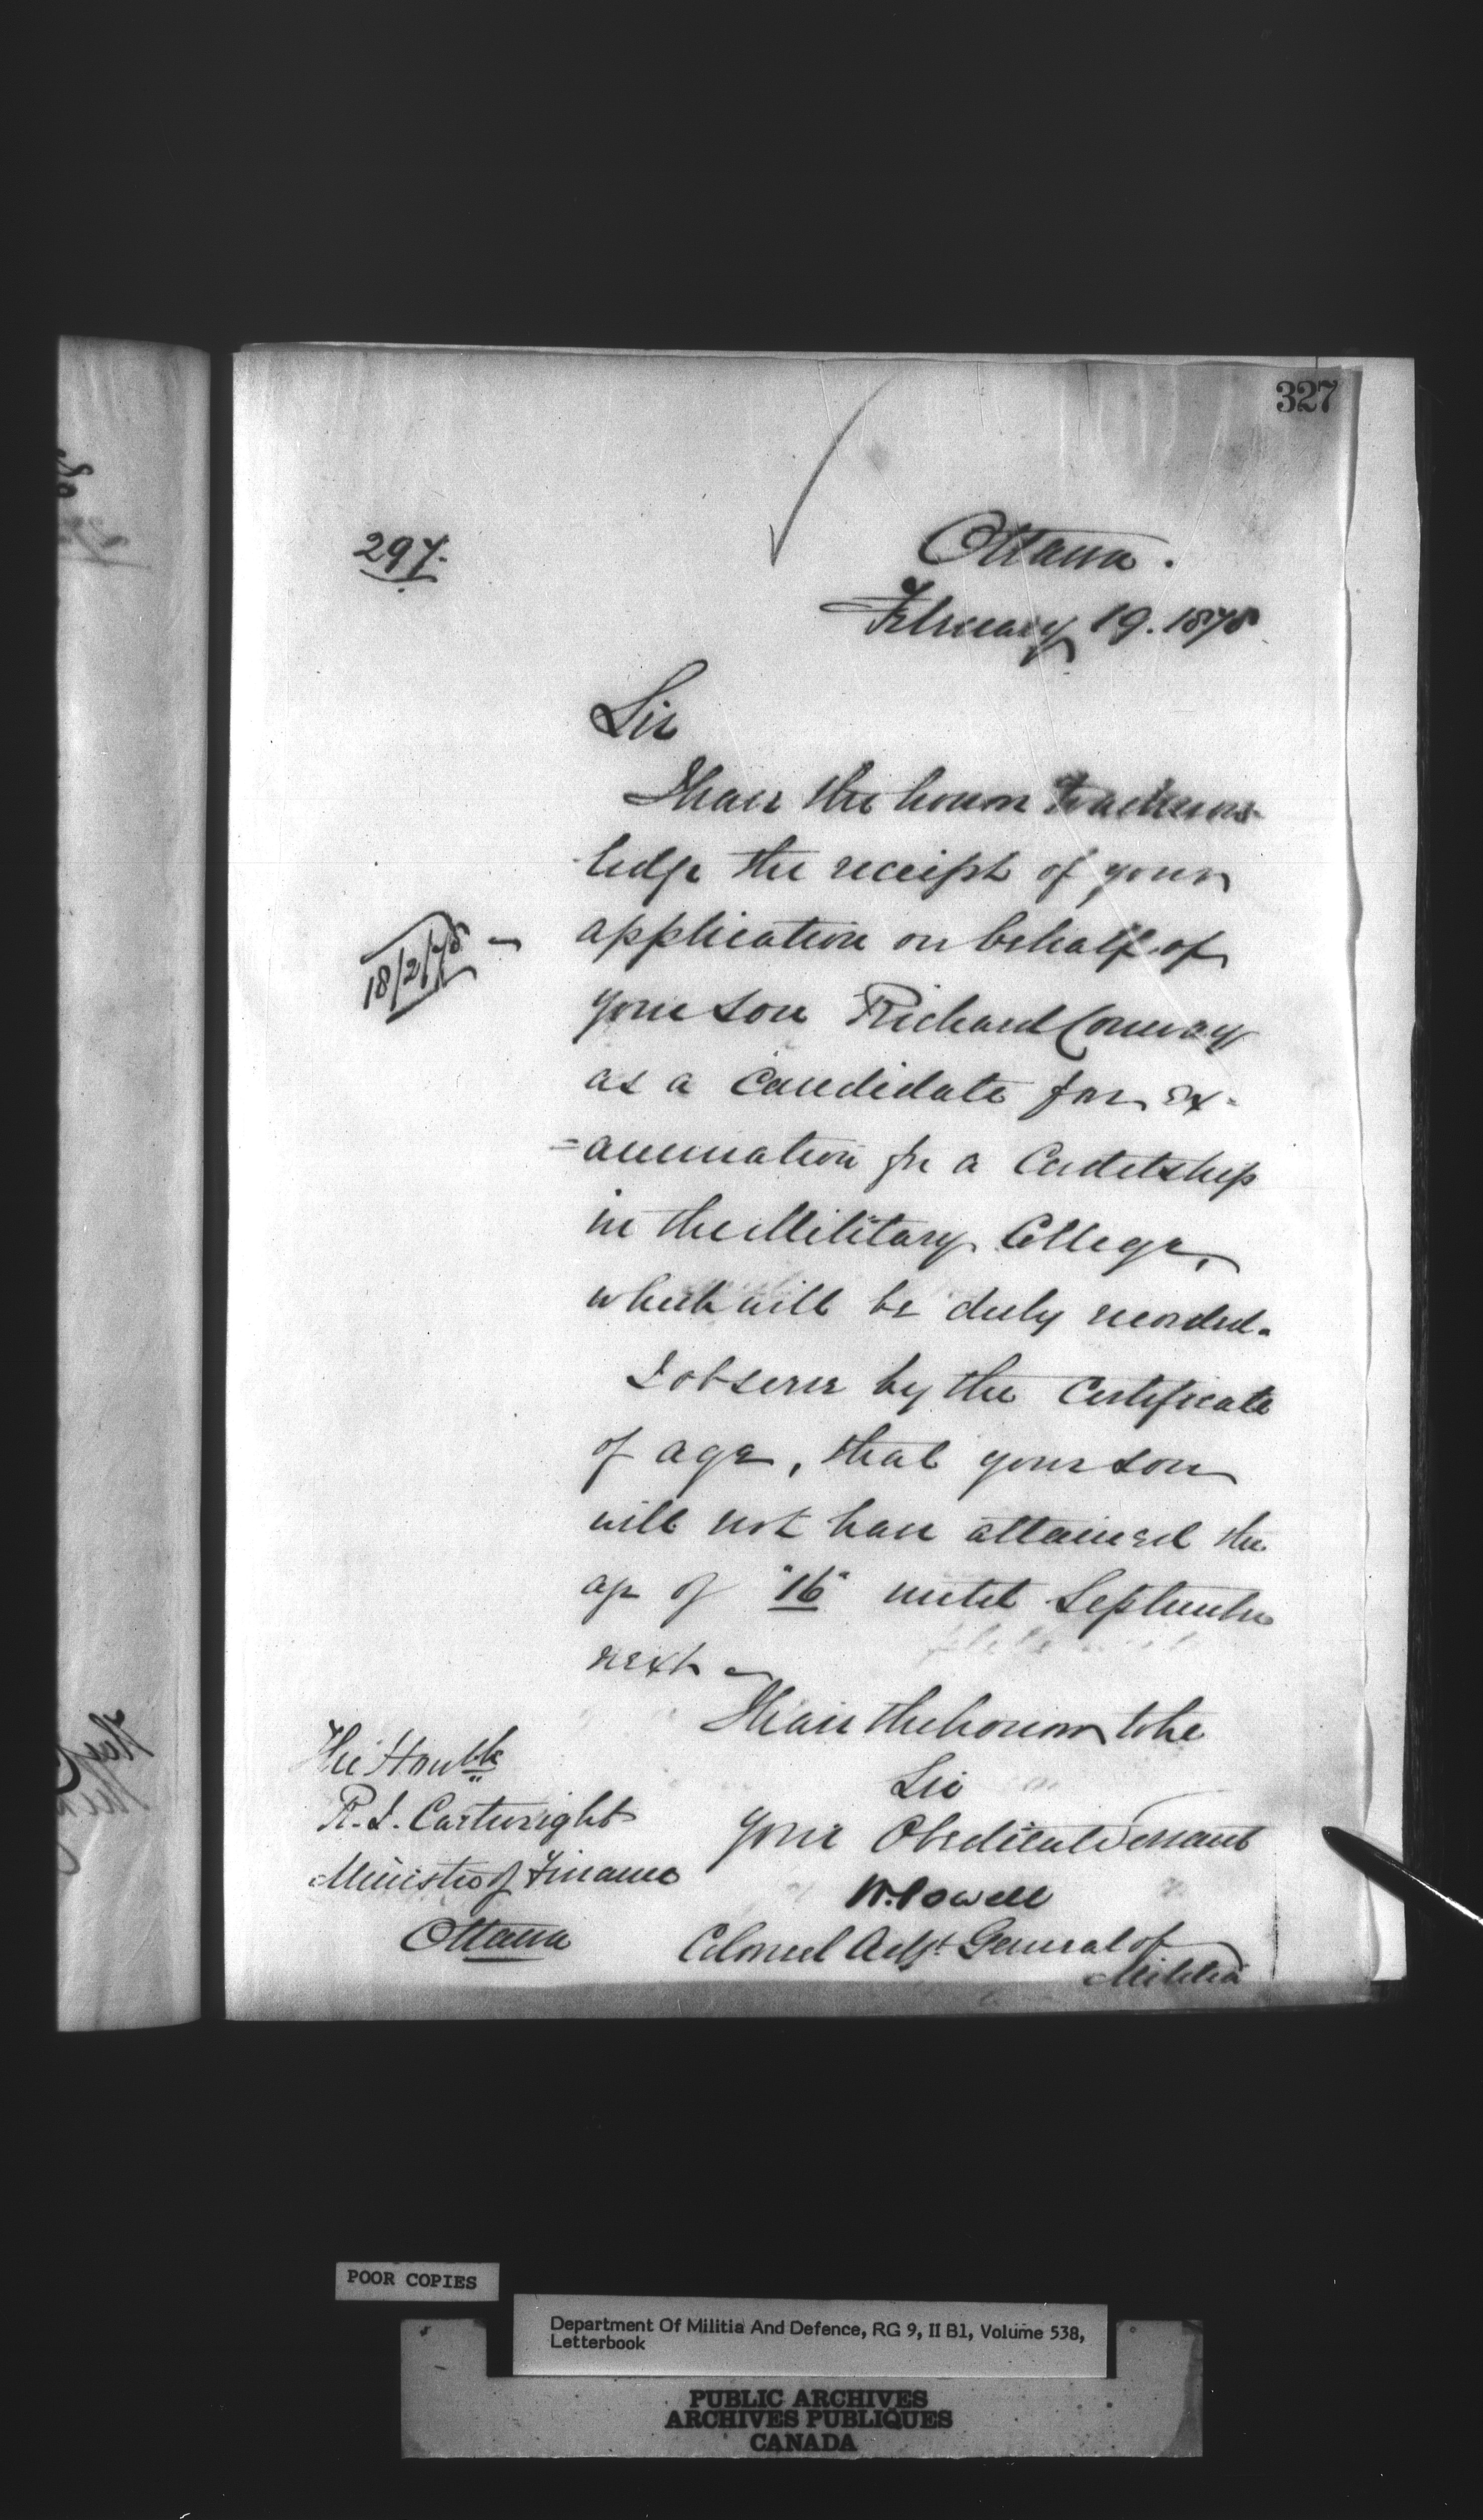 327
297.
Ottawa.
February 19. 1878
Sir
I have the honor to acknow-
ledge the receipt of your
18/2/78 -
application on behalf of
your son Richard Conway
as a Candidate for ex-
=amination for a Cadetship
in the Military College,
which will be duly recorded.
I observe by the Certificate
of age, that your son
will not have attained the
age of "16" until September
next -
I have the honor to be
Sir
Your Obedient Servant
W. Powell
Colonel Adjt. General of
Militia
The Honble
R. J. Cartwright
Minister of Finance
Ottawa
POOR COPIES
Department Of Militia And Defence, RG 9, II B1, Volume 538,
Letterbook
PUBLIC ARCHIVES
ARCHIVES PUBLIQUES
CANADA